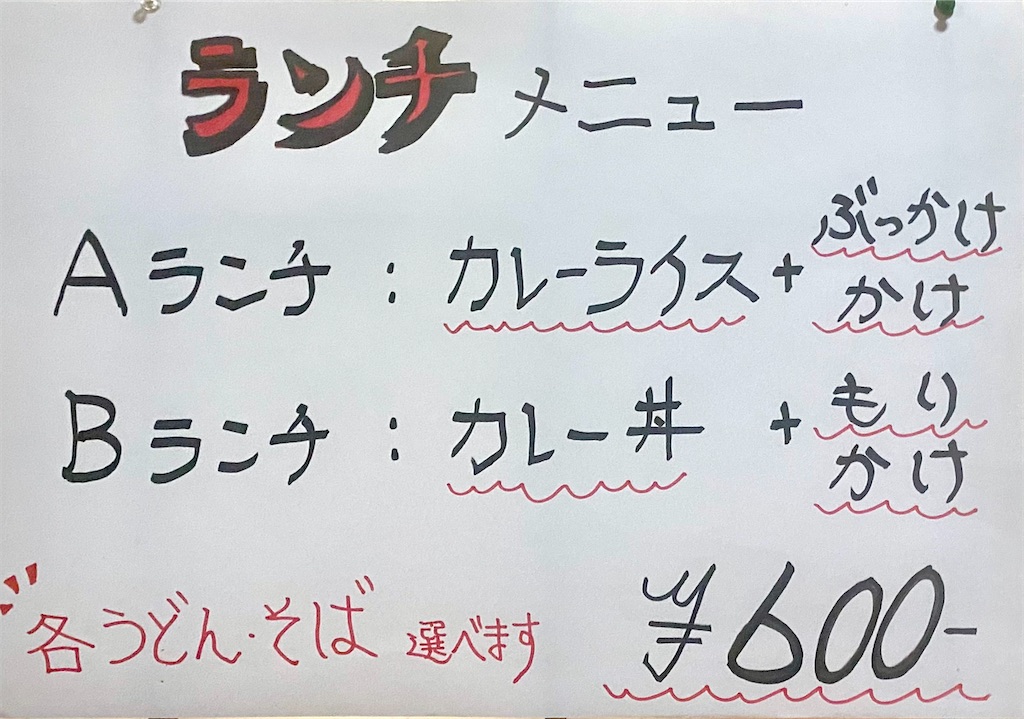 ランチメニュー
Aランチ：カレーライス＋ぶっかけ
かけ
Bランチ：カレー丼＋もり
かけ
各うどん・そば選べます
¥600-